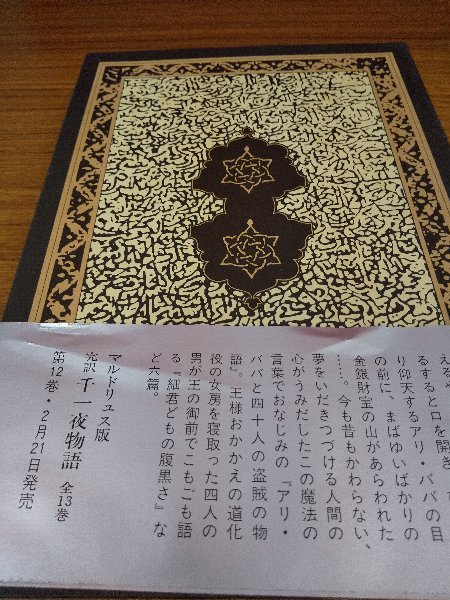 るすると口を開き
り仰天するアリ・ババの目
の前に、まばゆいばかりの
金銀財宝の山があらわれた
……。今も昔もかわらない、
夢をいだきつづける人間の
心がうみだしたこの魔法の
言葉でおなじみの『アリ・
ババと四十人の盗賊の物
語』。王様おかかえの道化
役の女房を寝取った四人の
男が王の御前でこもごも語
る『細君どもの腹黒さ』な
ど六篇。
マルドリュス版
完訳 千一夜物語 全13巻
第12巻・2月21日発売